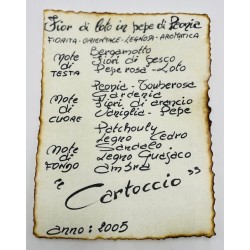 Fior di loto in pepe di Peonie
FIORITA - ORIENTALE - LEGNOSA - AROMATICA
Note di TESTA
Bergamotto
Fiori di Pesco
Pepe rosa - Loto
Note di CUORE
Peonie - Touberose
Gardenia
Fiori di arancio
Vaniglia - Pepe
Note di FONDO
Patchouly
Legno Cedro
Sandalo
Legno Guajaco
Ambra
"Cartoccio"
anno: 2005